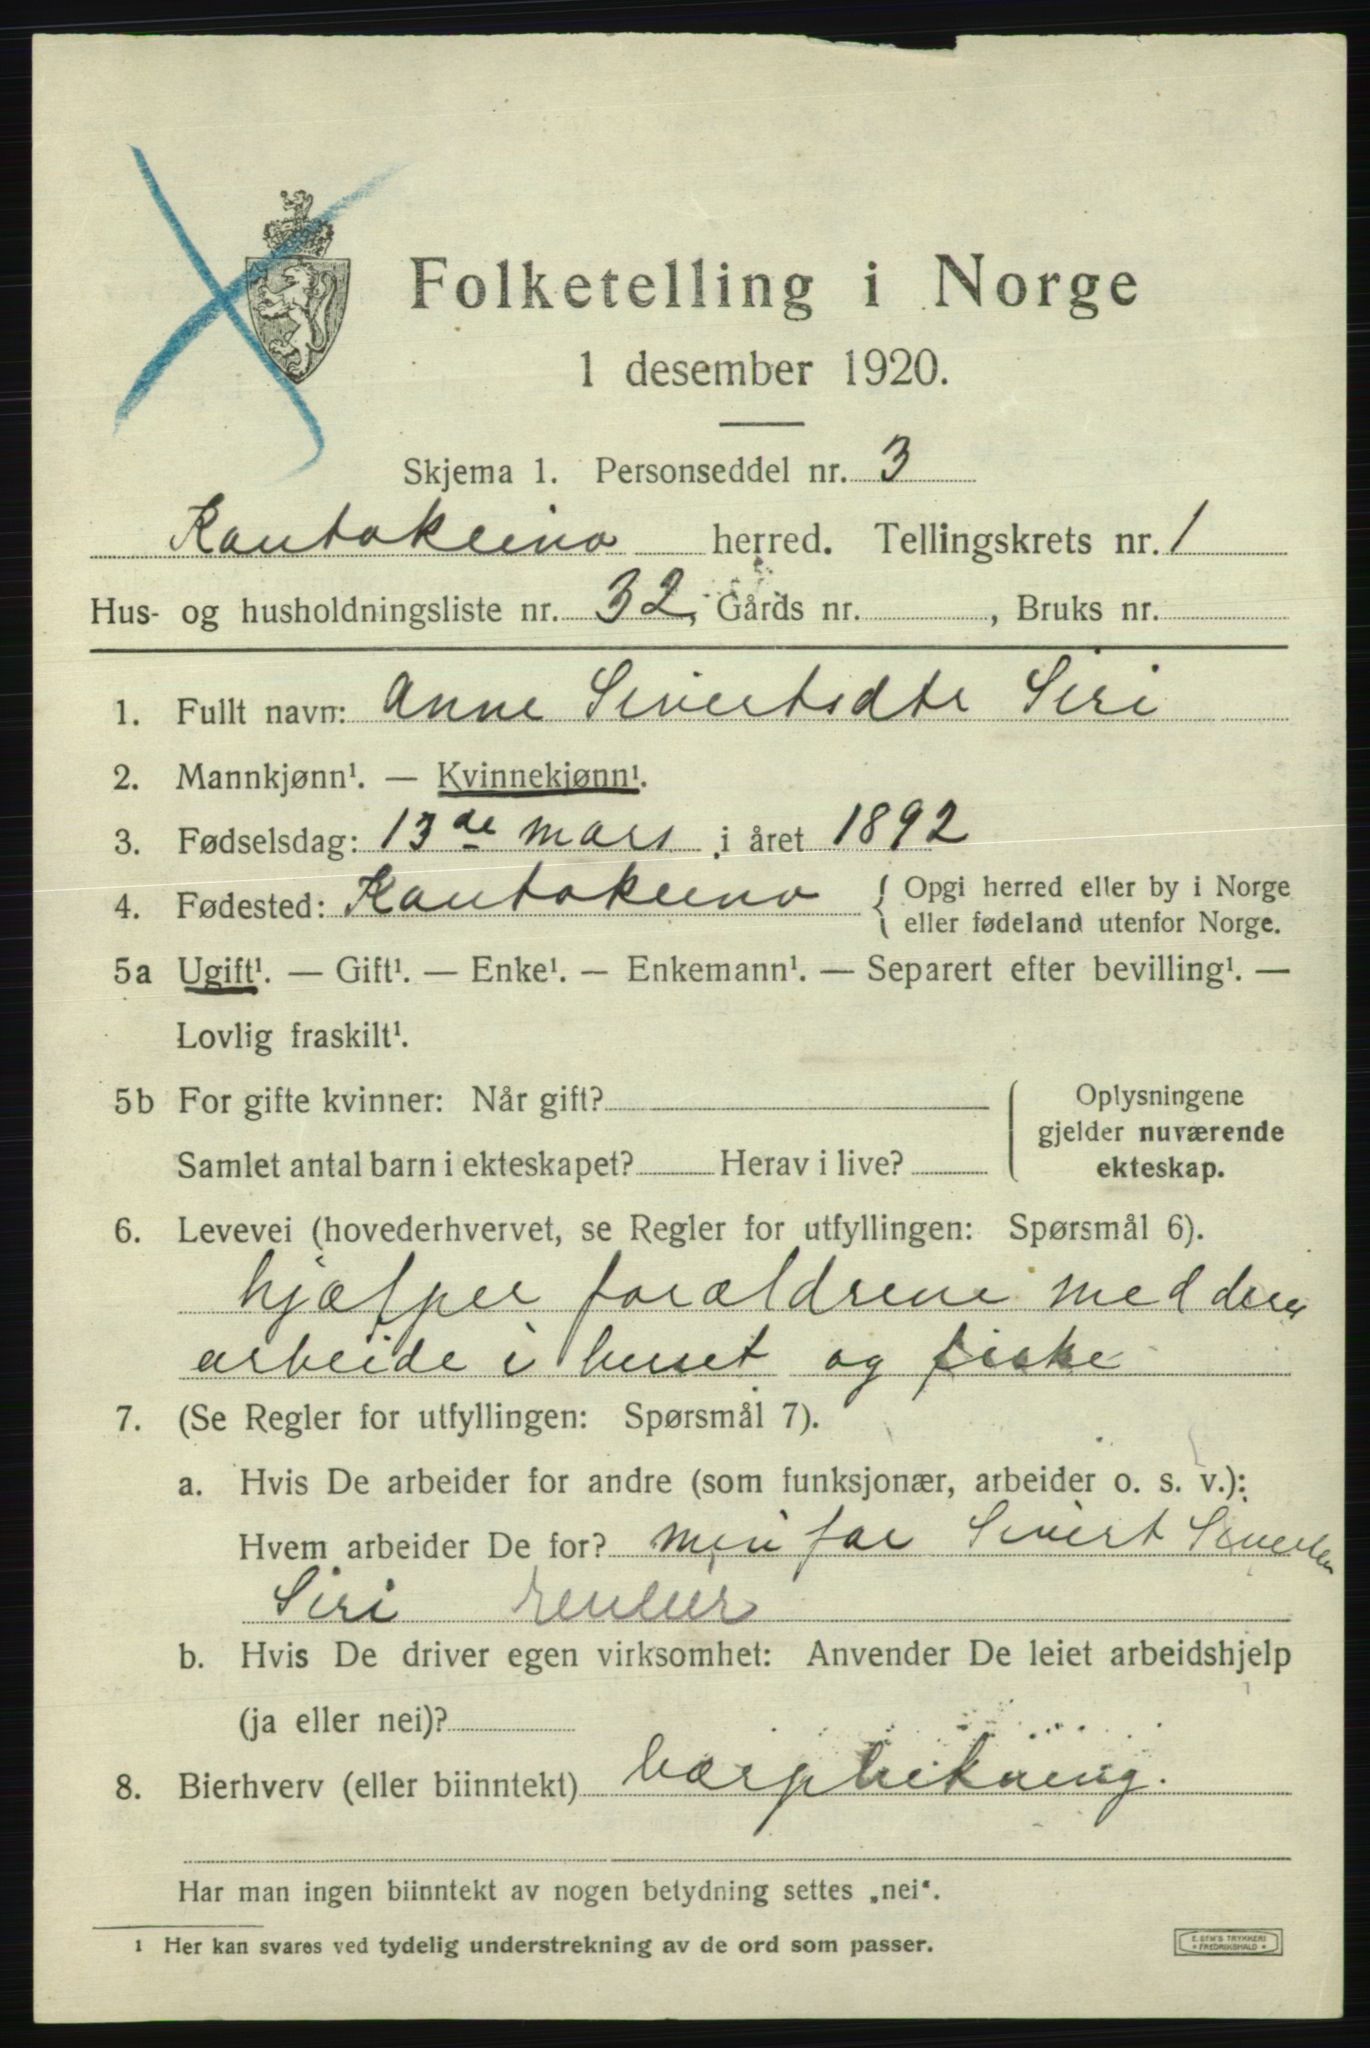 Folketelling i Norge
1 desember 1920.
Skjema 1. Personseddel nr. 3
Kautokeino herred. Tellingskrets nr. 1
Hus- og husholdningsliste nr. 32, Gårds nr. , Bruks nr.
1. Fullt navn: Anne Sivertsdtr Siri
2. Mannkjønn¹. — Kvinnekjønn¹.
3. Fødselsdag: 13de mars i året 1892
4. Fødested: Kautokeino { Opgi herred eller by i Norge
eller fødeland utenfor Norge.
5a Ugift¹. — Gift¹. — Enke¹. — Enkemann¹. — Separert efter bevilling¹. —
Lovlig fraskilt¹.
5b For gifte kvinner: Når gift? Oplysningene
gjelder nuværende
Samlet antal barn i ekteskapet? Herav i live? ekteskap.
6. Levevei (hovederhvervet, se Regler for utfyllingen: Spørsmål 6).
hjælper forældrene med deres
arbeide i huset og fiske
7. (Se Regler for utfyllingen: Spørsmål 7).
a. Hvis De arbeider for andre (som funksjonær, arbeider o. s. v.):
Hvem arbeider De for? min far Sivert Sivertsen
Siri
b. Hvis De driver egen virksomhet: Anvender De leiet arbeidshjelp
(ja eller nei)?
8. Bierhverv (eller biinntekt) bærplukning.
Har man ingen biinntekt av nogen betydning settes „nei“.
1 Her kan svares ved tydelig understrekning av de ord som passer.
E. SEM'S TRYKKERI
* FREDRIKSHALD *